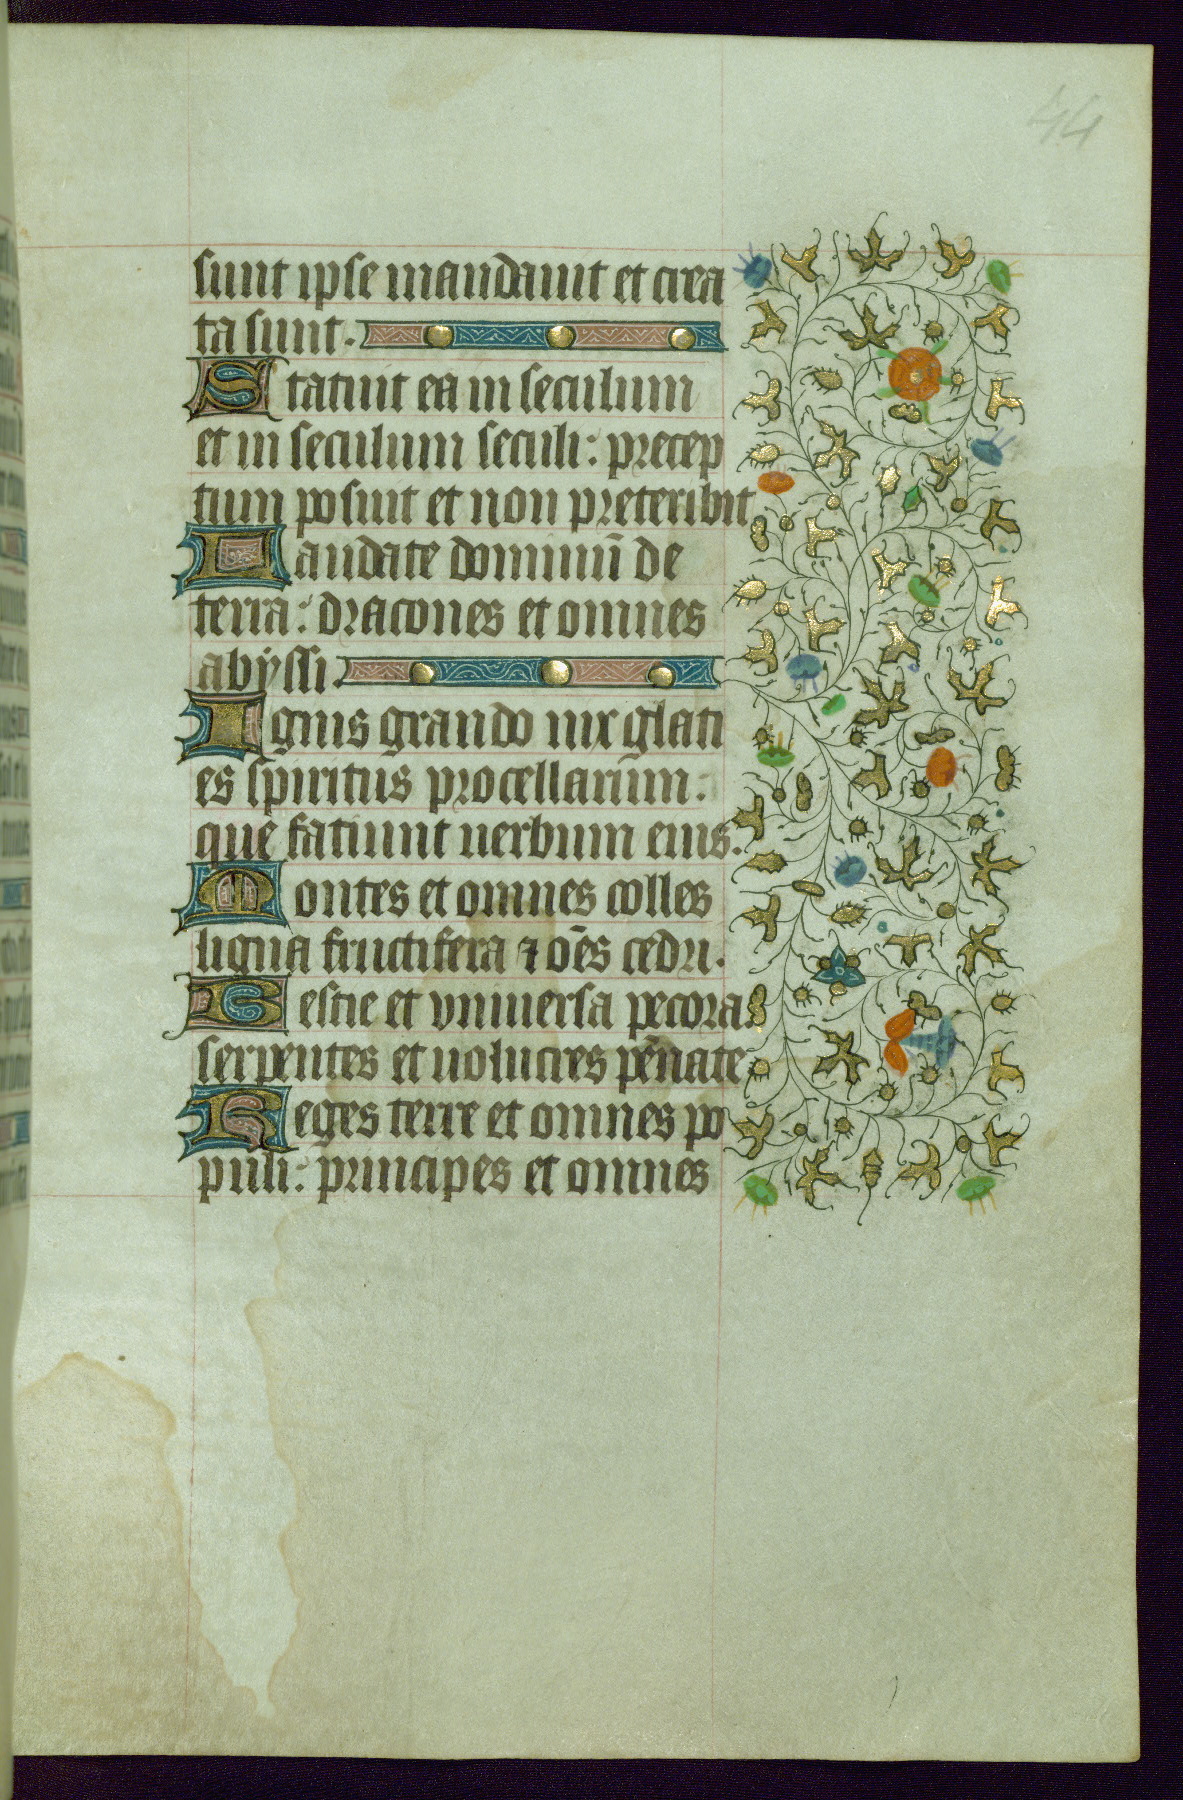 44
sunt ipse mandauit et crea
ta sunt.
Statuit ea in seculum
et in seculum seculi: precep
tum posuit et non preteribit
Laudate dominū de
terra: dracones et omnes
abyssi.
Ignis grando nix glati
es spiritus procellarum:
que fatiunt uerbum eius.
Montes et omnes colles
ligna fructifera ⁊ oēs cedri.
Bestie et vniuersa pecora.
serpentes et uolucres pēnate
Reges terre et omnes po
puli: principes et omnes